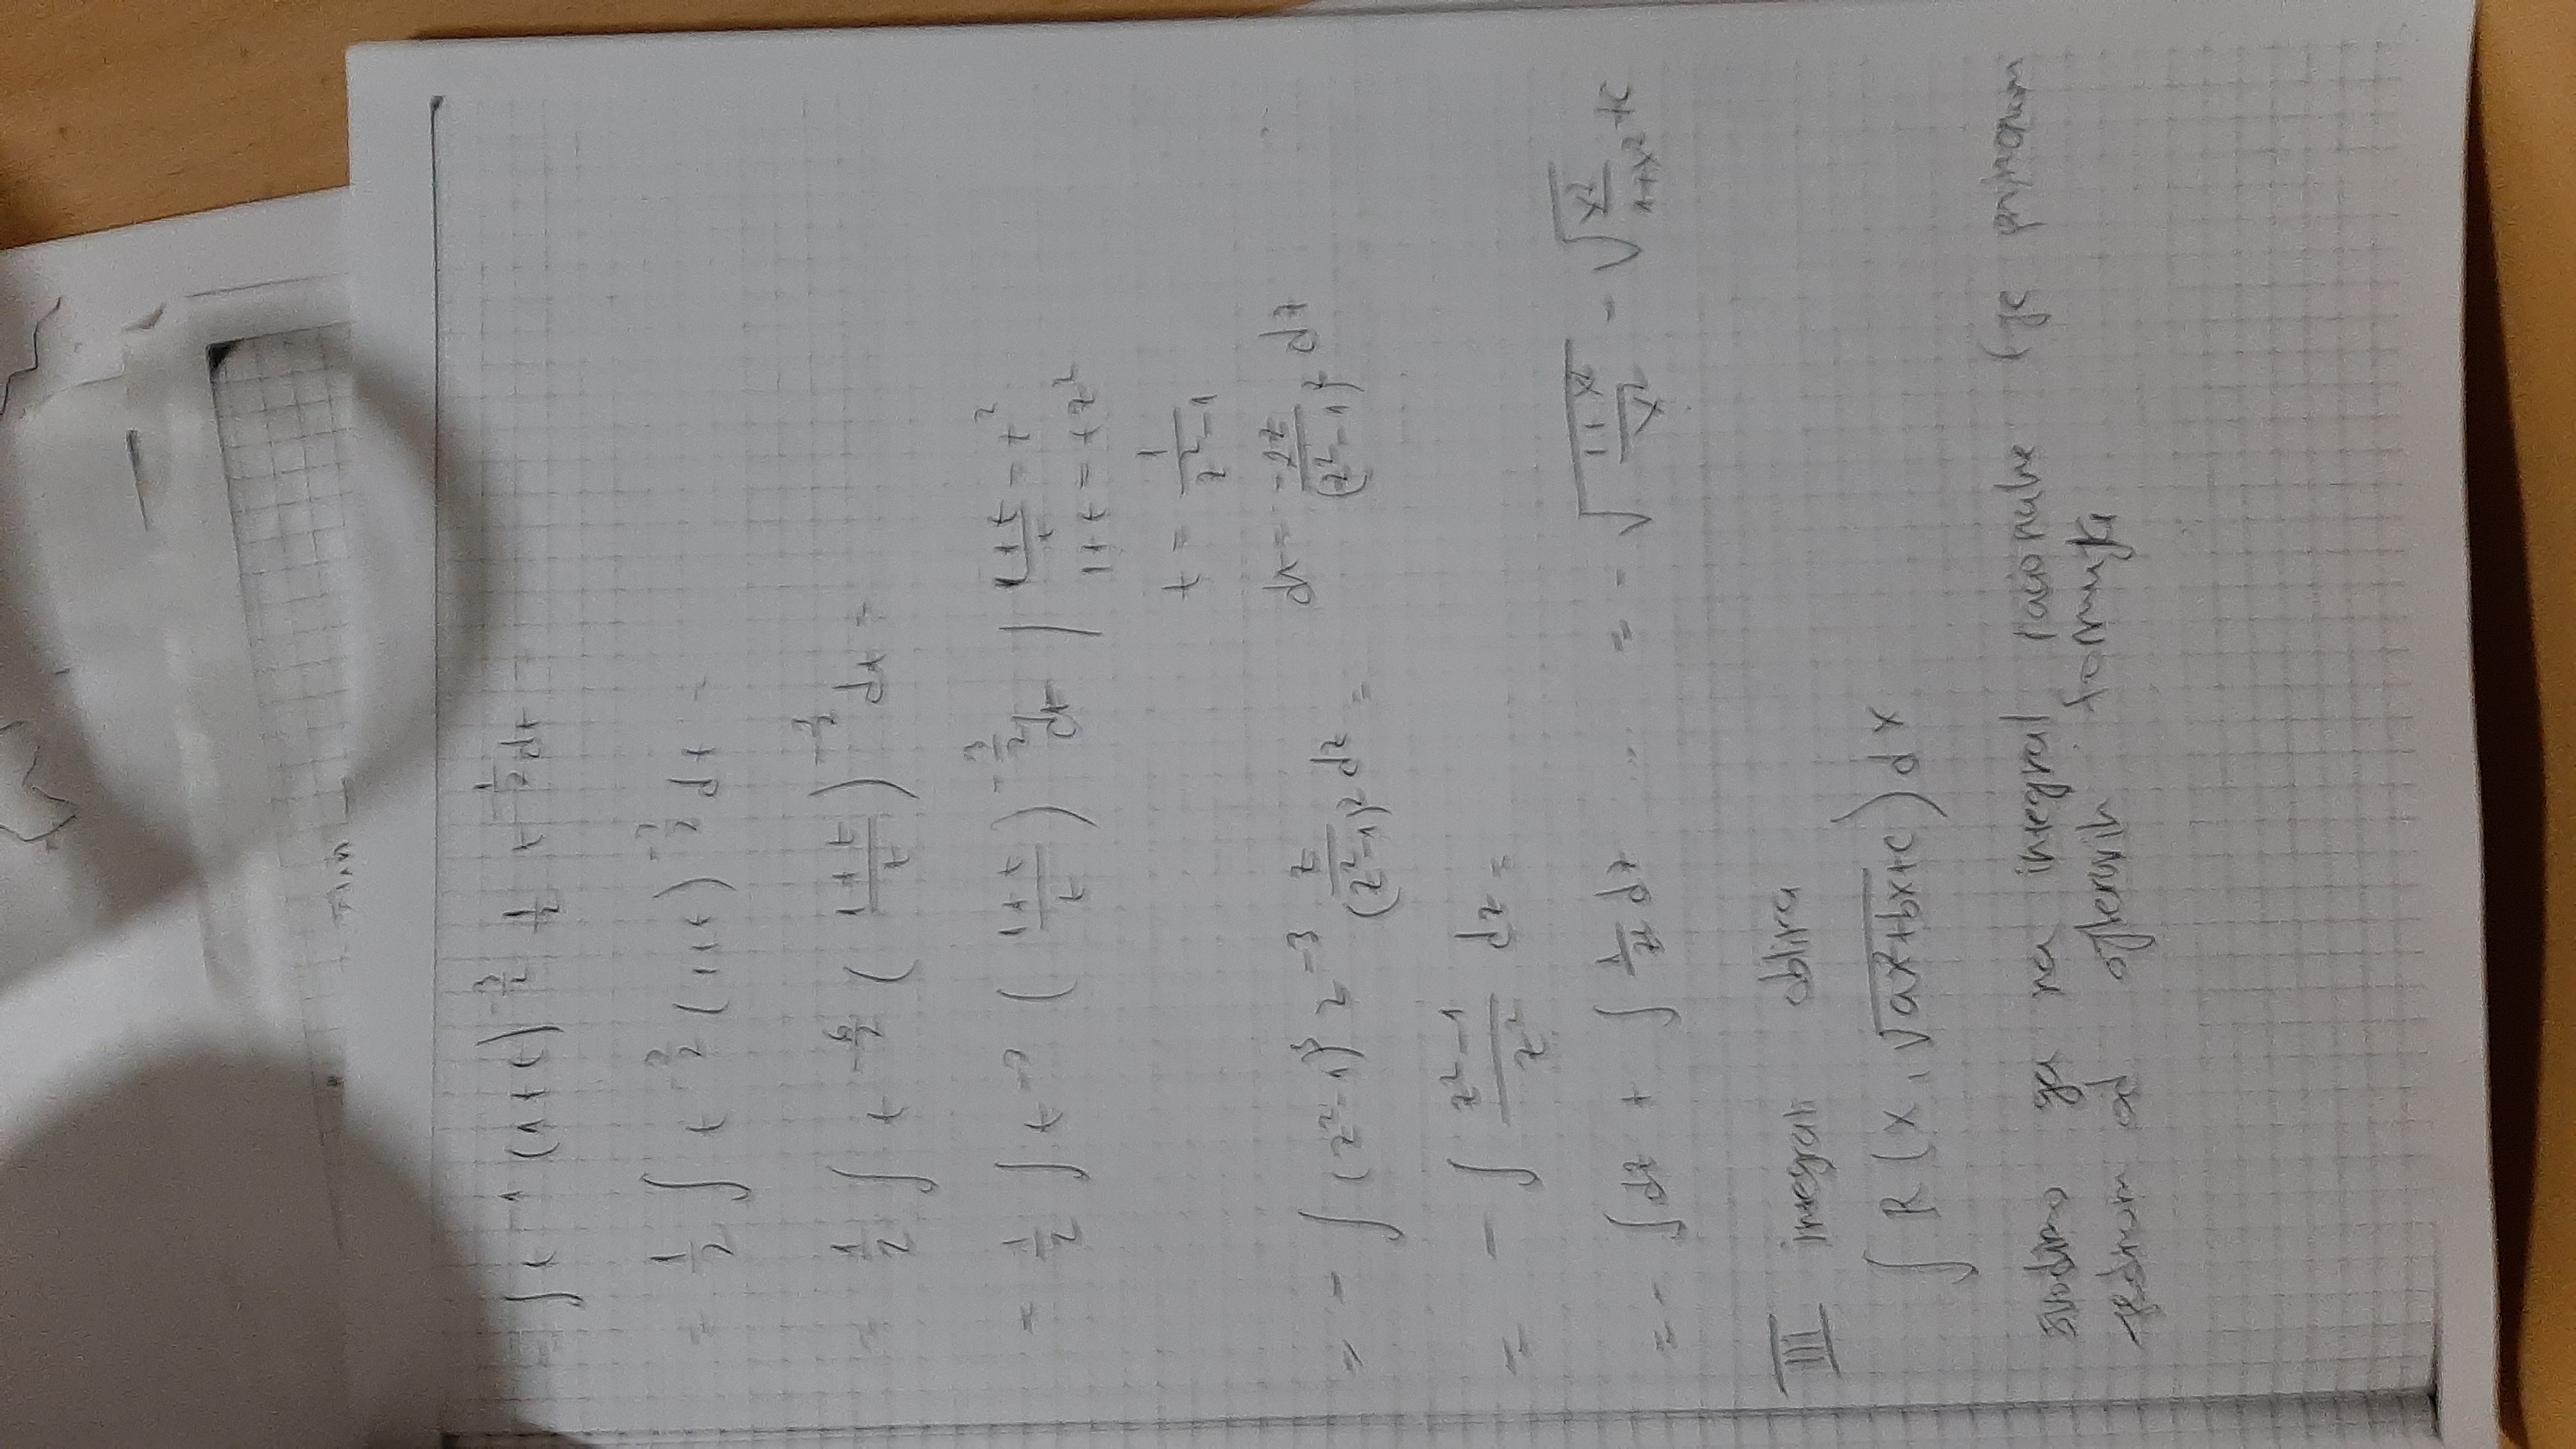 ∫ t⁻¹ (1+t)^(-3/2) 1/2 t^(-1/2) dt
= 1/2 ∫ t^(-3/2) (1+t)^(-3/2) dt =
= 1/2 ∫ t^(-6/2) ((1+t)/t)^(-3/2) dt =
= 1/2 ∫ t⁻³ ((1+t)/t)^(-3/2) dt | (1+t)/t = z²
1+t = tz²
t = 1/(z²-1)
dt = -2z/(z²-1)² dz
= - ∫ (z²-1)³ z⁻³ z/(z²-1)² dz =
= - ∫ (z²-1)/z² dz =
= - ∫ dz + ∫ 1/z² dz ... = - √((1+x²)/x²) - √(x²/(1+x²)) + C
III integrali oblika
∫ R(x, √(ax²+bx+c)) dx
svodimo ga na integral racionalne fje primenom
jednom od ojlerovih formula